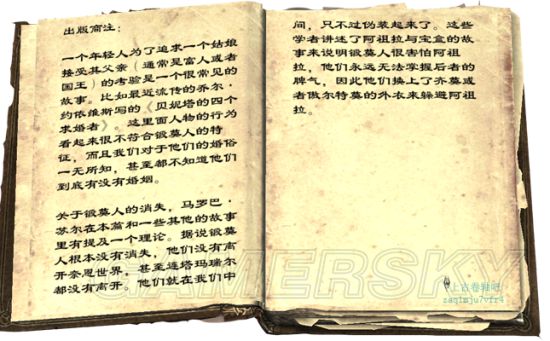 出版商注：
一个年轻人为了追求一个姑娘
接受其父亲（通常是富人或者
国王）的考验是一个很常见的
故事。比如最近流传的乔尔·
约依维斯写的《贝妮塔的四个
求婚者》。这里面人物的行为
看起来很不符合锻莫人的特
征，而且我们对于他们的婚俗
一无所知，甚至都不知道他们
到底有没有婚姻。
关于锻莫人的消失，马罗巴·
苏尔在本篇和一些其他的故事
里有提及一个理论。据说锻莫
人根本没有消失，他们没有离
开奈恩世界，甚至连塔玛瑞尔
都没有离开。他们就在我们中
间，只不过伪装起来了。这些
学者讲述了阿祖拉与宝盒的故
事来说明锻莫人很害怕阿祖
拉，他们永远无法掌握后者的
脾气，因此他们换上了齐莫或
者俄尔特莫的外衣来躲避阿祖
拉。
GAMERSKY
上古卷轴吧
zaqimju7vfr4